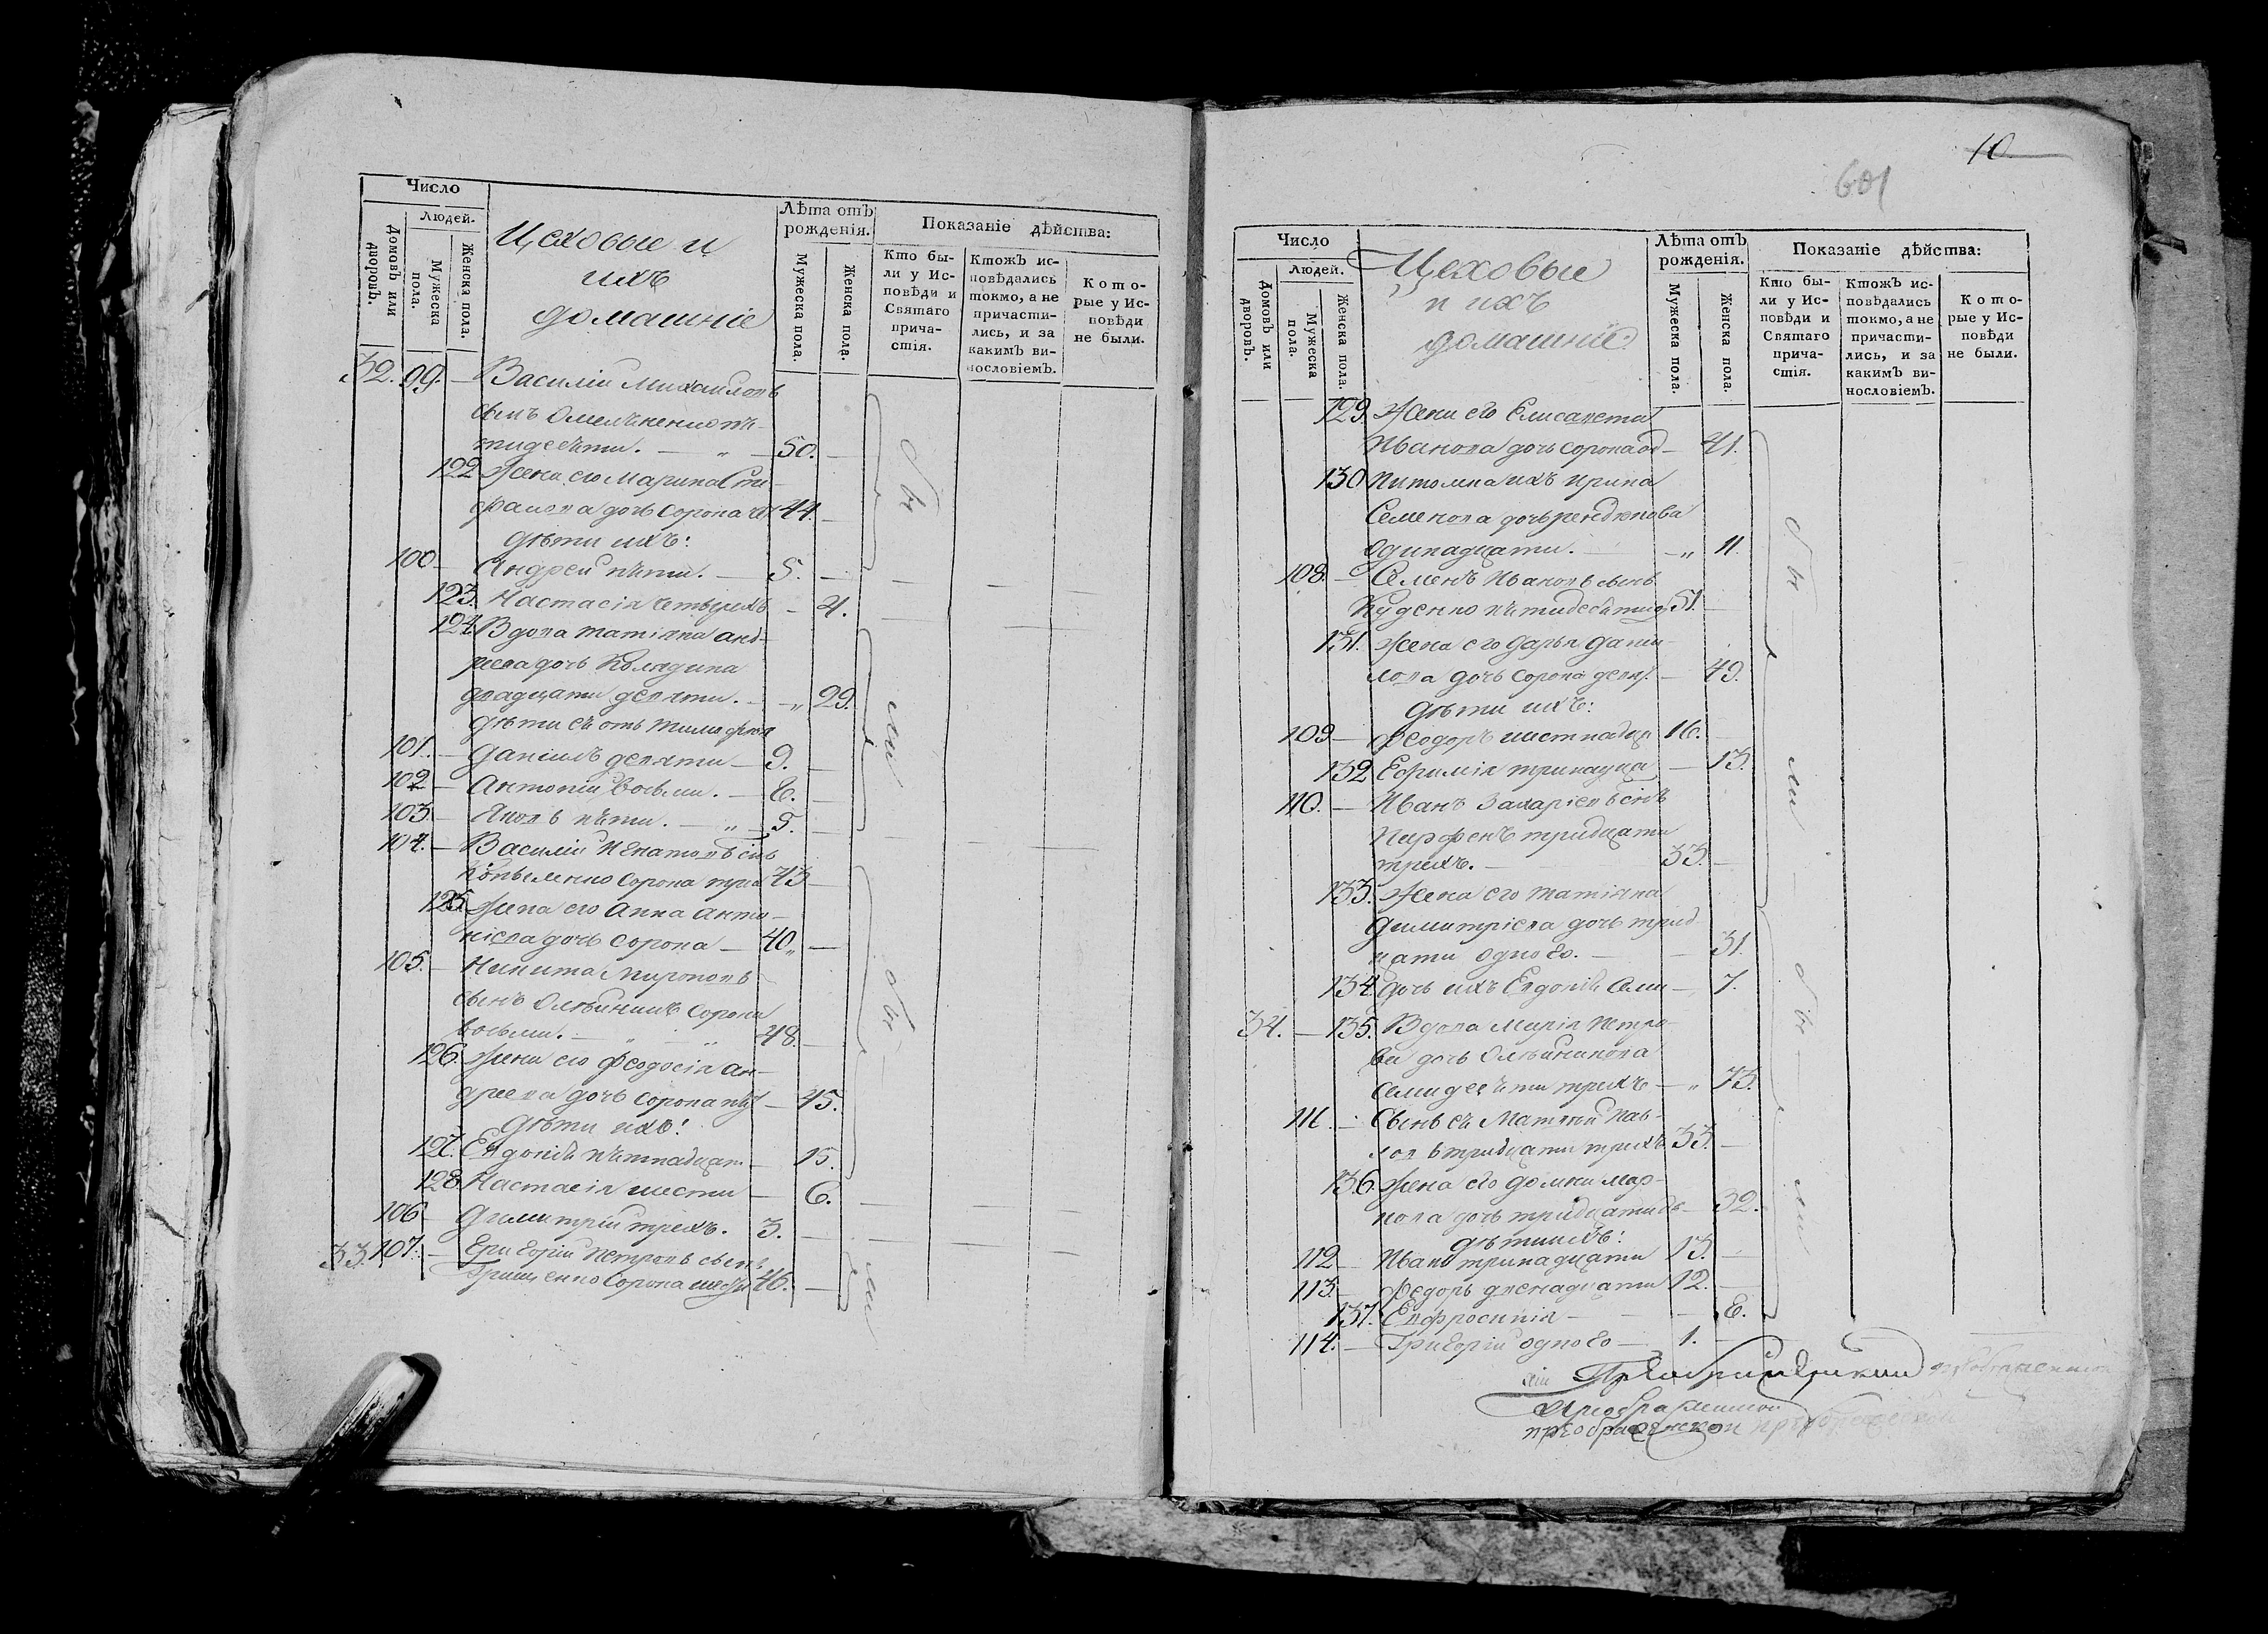 Число
Людей.
Домовъ или дворовъ.
Мужеска пола.
Женска пола.
Цеховые и
ихъ
домашніе
Лѣта отъ рожденія.
Мужеска пола.
Женска пола.
Показаніе дѣйства:
Кто бы-
ли у Ис-
повѣди и
Святаго
прича-
стія.
Ктожъ ис-
повѣдались
токмо, а не
причасти-
лись, и за
какимъ ви-
нословіемъ.
Кото-
рые у Ис-
повѣди
не были.
32. 99. — Василій Михаиловъ
сынъ Омельченко пя-
тидесяти. — 50. —
122 Жена его Марина Сте-
фанова дочь сорока чет 44. —
Дѣти ихъ:
100 — Андрей пяти. — 5. —
123. Настасія четырехъ — 4.
124. Вдова Татіяна Анд-
реева дочь
двадцати девяти. — 29.
Дѣти ея отъ Тимофея
101. — Даніилъ девяти — 9. —
102 — Антоній восьми. — 8. —
103 — Яковъ пяти. — 5. —
104. — Василій Игнатовъ сынъ
сорока трех 43 —
125. Жена его Анна Анто-
ніева дочь сорока — 40 —
105. — Никита Мироновъ
сынъ Олѣйникъ сорока
восьми. — 48. —
126. Жена его Феодосія Ан-
дреева дочь сорока пят — 45.
Дѣти ихъ:
127. Евдокія пятнадцати — 15.
128. Настасія шести — 6.
106 — Димитрій трехъ. 3. —
33. 107. — Григорій Петровъ сынъ
Грищенко сорока шести 46. —
бы
ли
бы
ли
10
601
Число
Людей.
Домовъ или дворовъ.
Мужеска пола.
Женска пола.
Цеховые
и ихъ
домашніе
Лѣта отъ рожденія.
Мужеска пола.
Женска пола.
Показаніе дѣйства:
Кто бы-
ли у Ис-
повѣди и
Святаго
прича-
стія.
Ктожъ ис-
повѣдались
токмо, а не
причасти-
лись, и за
какимъ ви-
нословіемъ.
Кото-
рые у Ис-
повѣди
не были.
129. Жена его Елисавета
Иванова дочь сорока од — 41.
130 Питомка ихъ Ирина
Семенова дочь
одинадцати. — 11.
108. — Семенъ Ивановъ сынъ
Куценко пятидесяти од 51. —
131. Жена его Дарья Дани-
лова дочь сорока девят — 49.
Дѣти ихъ:
109 — Феодоръ шестнадца 16. —
132 Ефимія тринадца — 13.
110. — Иванъ Захаріевъ сынъ
тридцати
трехъ. — 33. —
133. Жена его Татіяна
Димитріева дочь трид
цати одного. — 31.
134. Дочь ихъ Евдокія семи — 7.
34. — 135. Вдова Марія Петро-
ва дочь Олѣйникова
семидесяти трехъ — 73.
111. — Сынъ ея Матвей Пав-
ловъ тридцати трехъ 33. —
136. Жена его Домна Мар-
кова дочь тридцати дв — 32.
Дѣти ихъ:
112 — Иванъ тринадцати 13. —
113. — Федоръ двенадцати 12. —
137. Евфросинія — — 8.
114. — Григорій одного — 1. —
бы
ли
бы
ли
Преображенской
преображенской